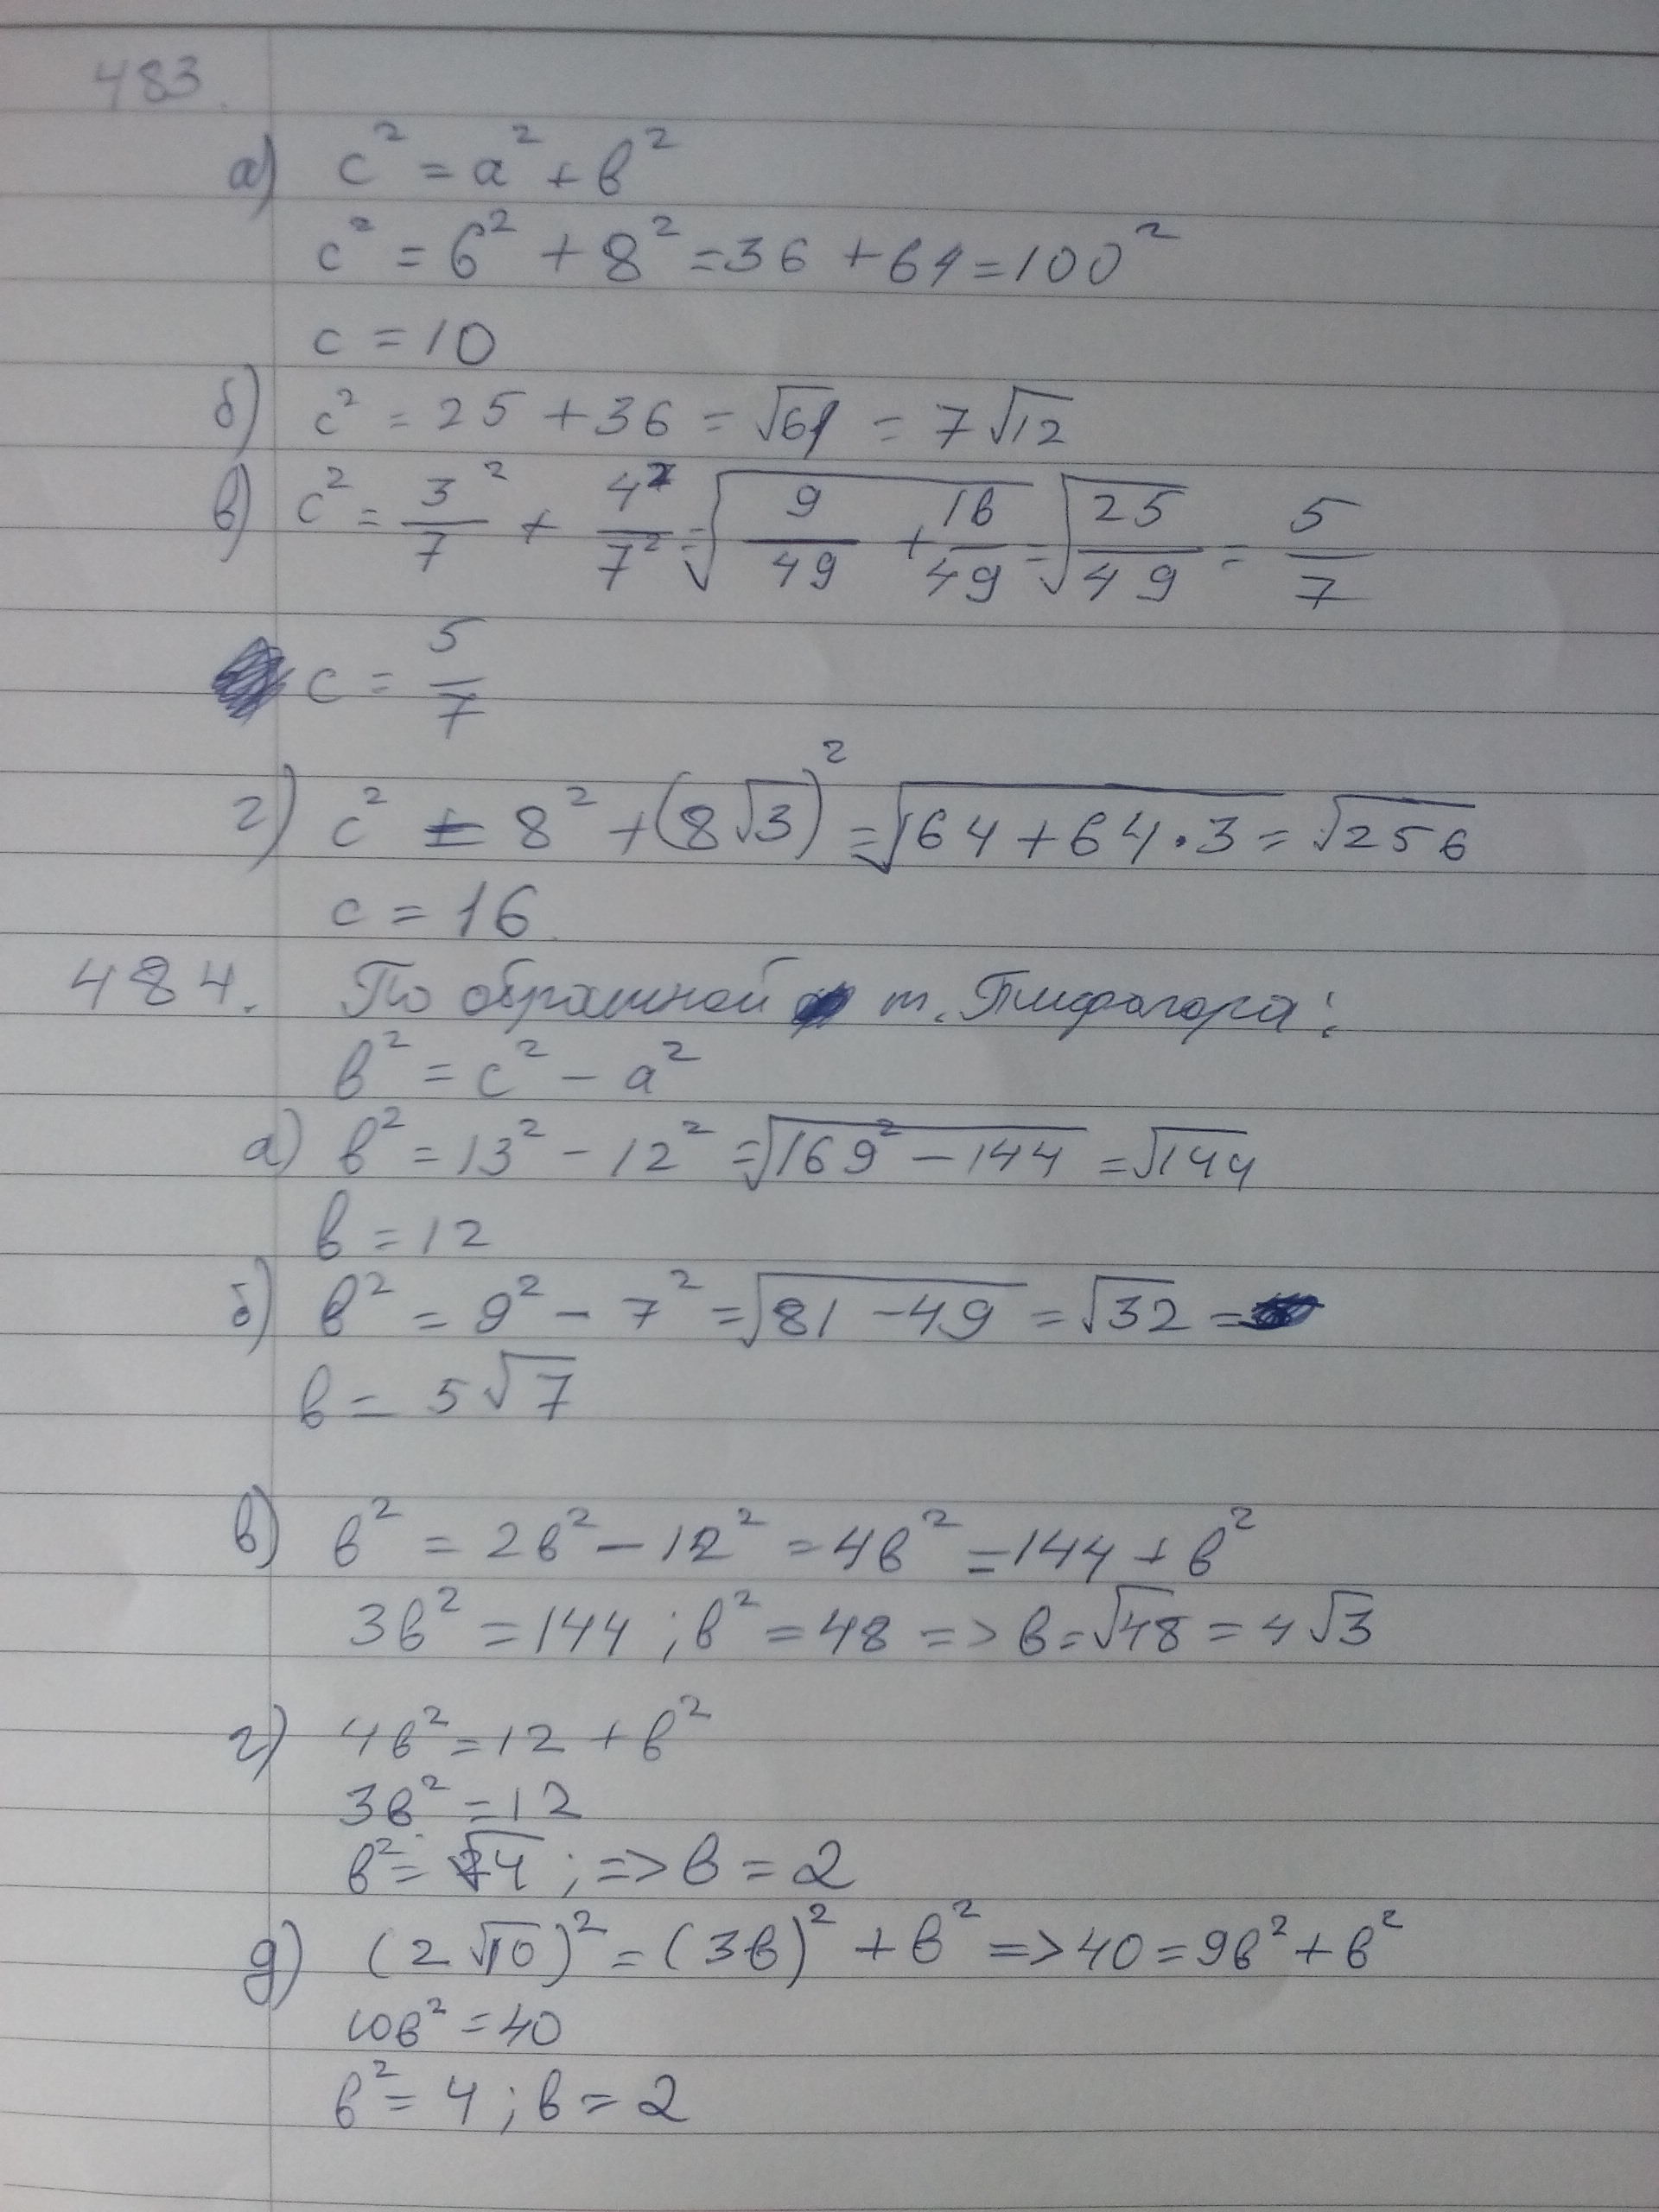 483.
а) c² = a² + b²
c² = 6² + 8² = 36 + 64 = 100²
c = 10
б) c² = 25 + 36 = √61 = 7√12
в) c² = 3²/7 + 4²/7² = √(9/49 + 16/49) = √(25/49) = 5/7
c = 5/7
г) c² = 8² + (8√3)² = √(64 + 64 · 3) = √256
c = 16
484. По обратной т. Пифагора:
b² = c² − a²
а) b² = 13² − 12² = √(169² − 144) = √144
b = 12
б) b² = 9² − 7² = √(81 − 49) = √32 =
b = 5√7
в) b² = 2b² − 12² = 4b² = 144 + b²
3b² = 144 ; b² = 48 => b = √48 = 4√3
г) 4b² = 12 + b²
3b² = 12
b² = √4 ; => b = 2
д) (2√10)² = (3b)² + b² => 40 = 9b² + b²
10b² = 40
b² = 4 ; b = 2